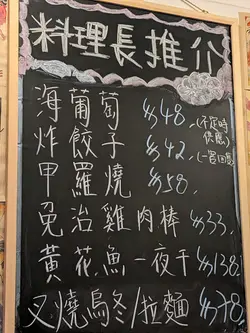 料理長推介
海葡萄 $48.(不定時供應)
炸餃子 $42.(一客四
甲羅燒 $58.
免治雞肉棒 $33.
黃花魚一夜干 $138.
叉燒烏冬/拉麵 $78.